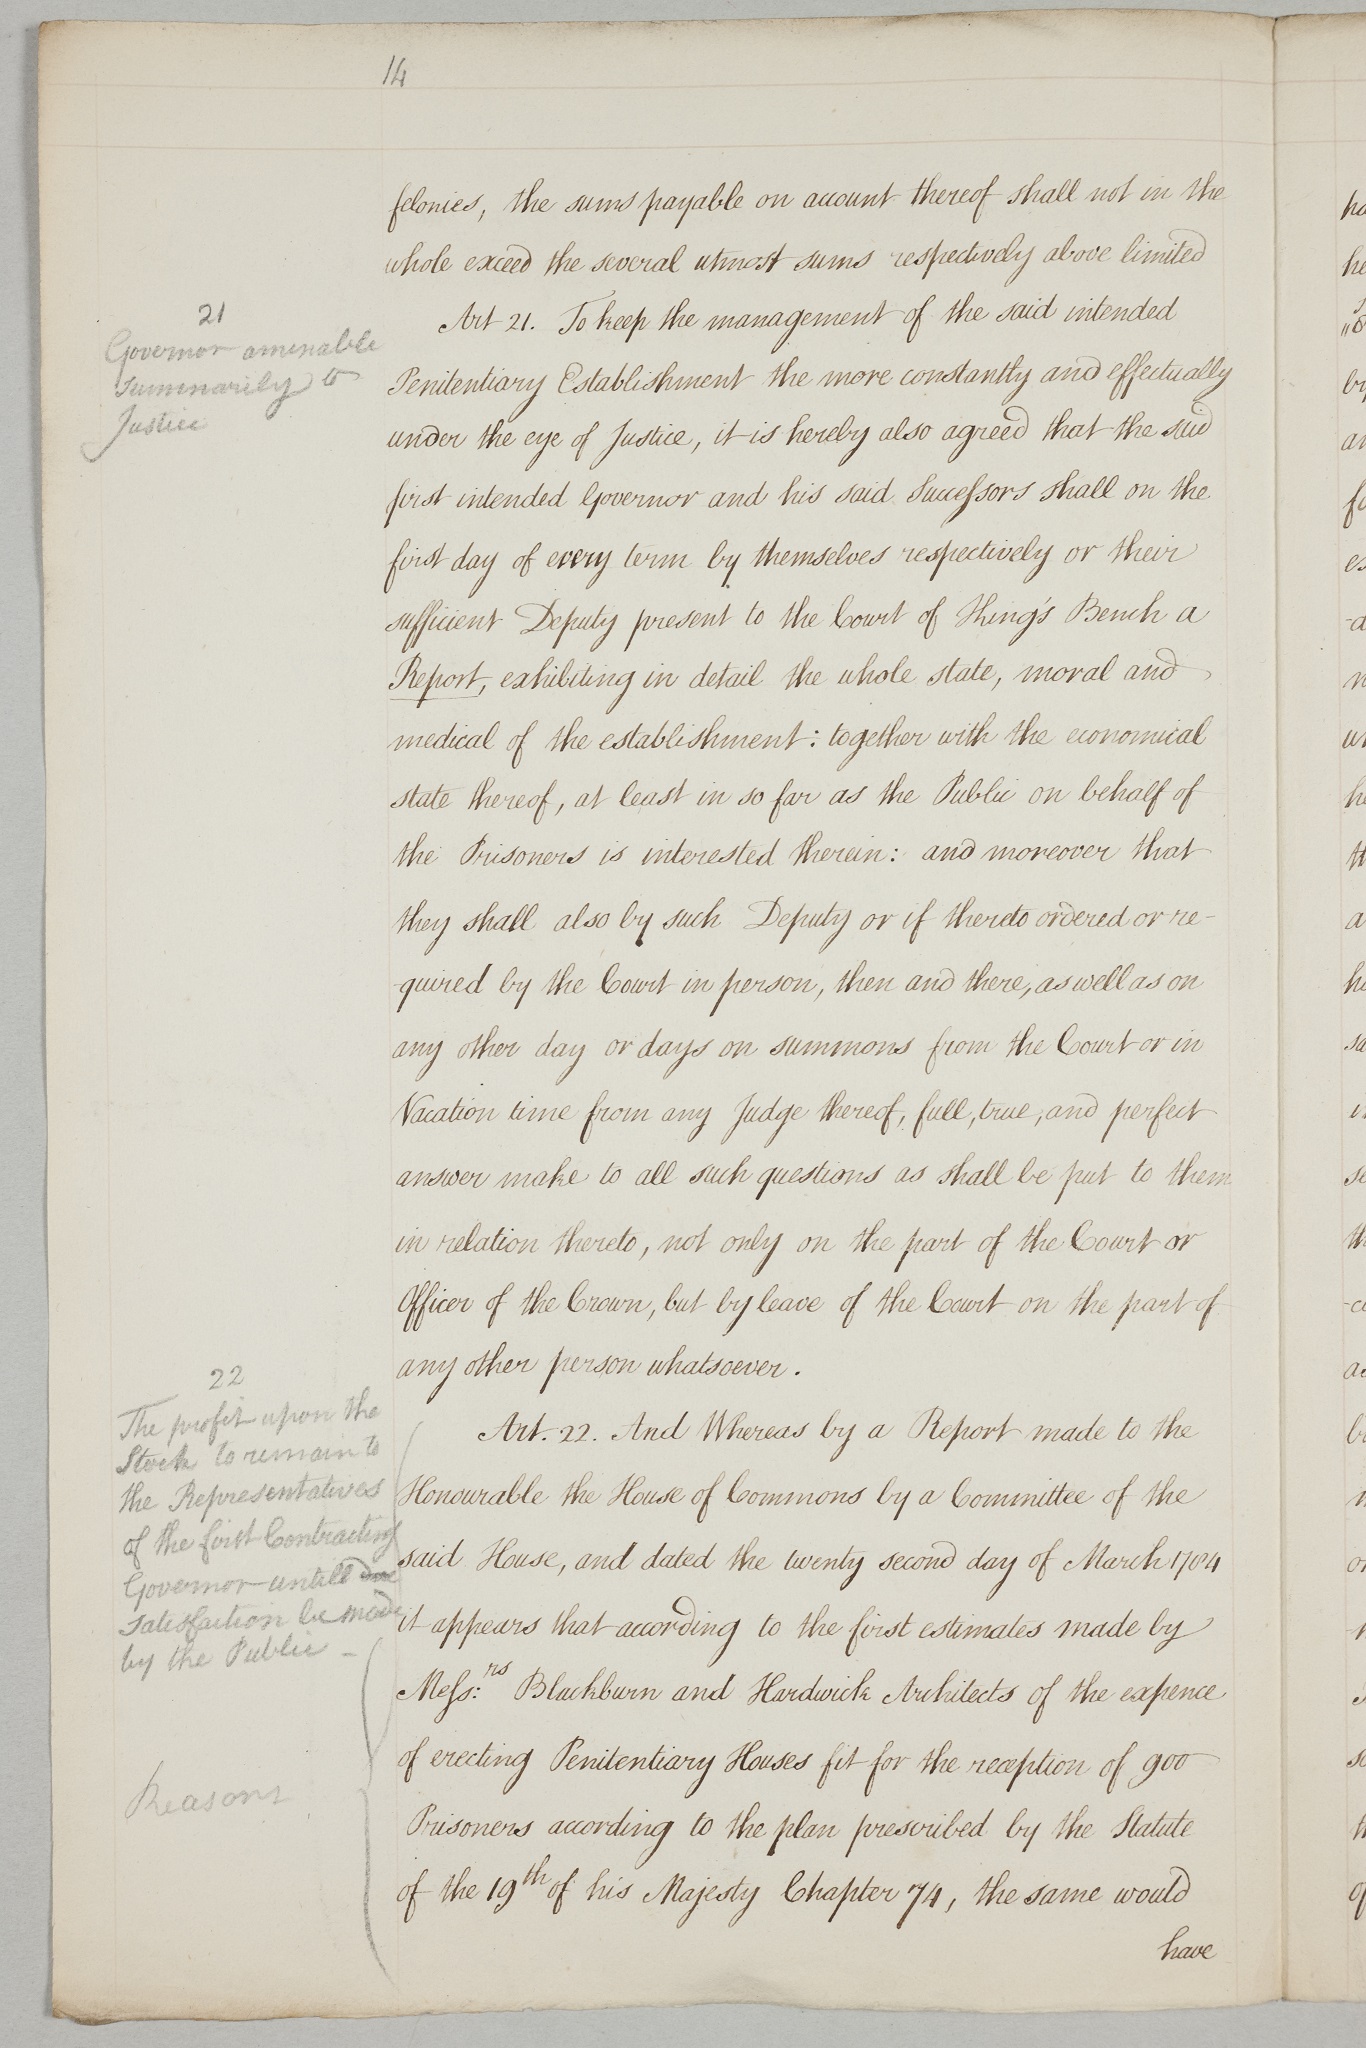 14
felonies, the sums payable on account thereof shall not in the
whole exceed the several utmost sums respectively above limited
21
Governor amenable
summarily to
Justice
Art 21. To keep the management of the said intended
Penitentiary Establishment the more constantly and effectually
under the eye of Justice, it is hereby also agreed that the said
first intended Governor and his said Successors shall on the
first day of every term by themselves respectively or their
sufficient Deputy present to the Court of King's Bench a
Report, exhibiting in detail the whole state, moral and
medical of the establishment: together with the economical
state thereof, at least in so far as the Public on behalf of
the Prisoners is interested therein: and moreover that
they shall also by such Deputy or if thereto ordered or re-
-quired by the Court in person, then and there, as well as on
any other day or days on summons from the Court or in
Vacation time from any Judge thereof, full, true, and perfect
answer make to all such questions as shall be put to them
in relation thereto, not only on the part of the Court or
Officer of the Crown, but by leave of the Court on the part of
any other person whatsoever.
22
The profit upon the
Stock to remain to
the Representatives
of the first Contracting
Governor untill due
satisfaction be made
by the Public –
Reasons
Art. 22. And Whereas by a Report made to the
Honourable the House of Commons by a Committee of the
said House, and dated the twenty second day of March 1784
it appears that according to the first estimates made by
Mess:rs Blackburn and Hardwick Architects of the expence
of erecting Penitentiary Houses fit for the reception of 900
Prisoners according to the plan prescribed by the Statute
of the 19th of his Majesty Chapter 74, the same would
have